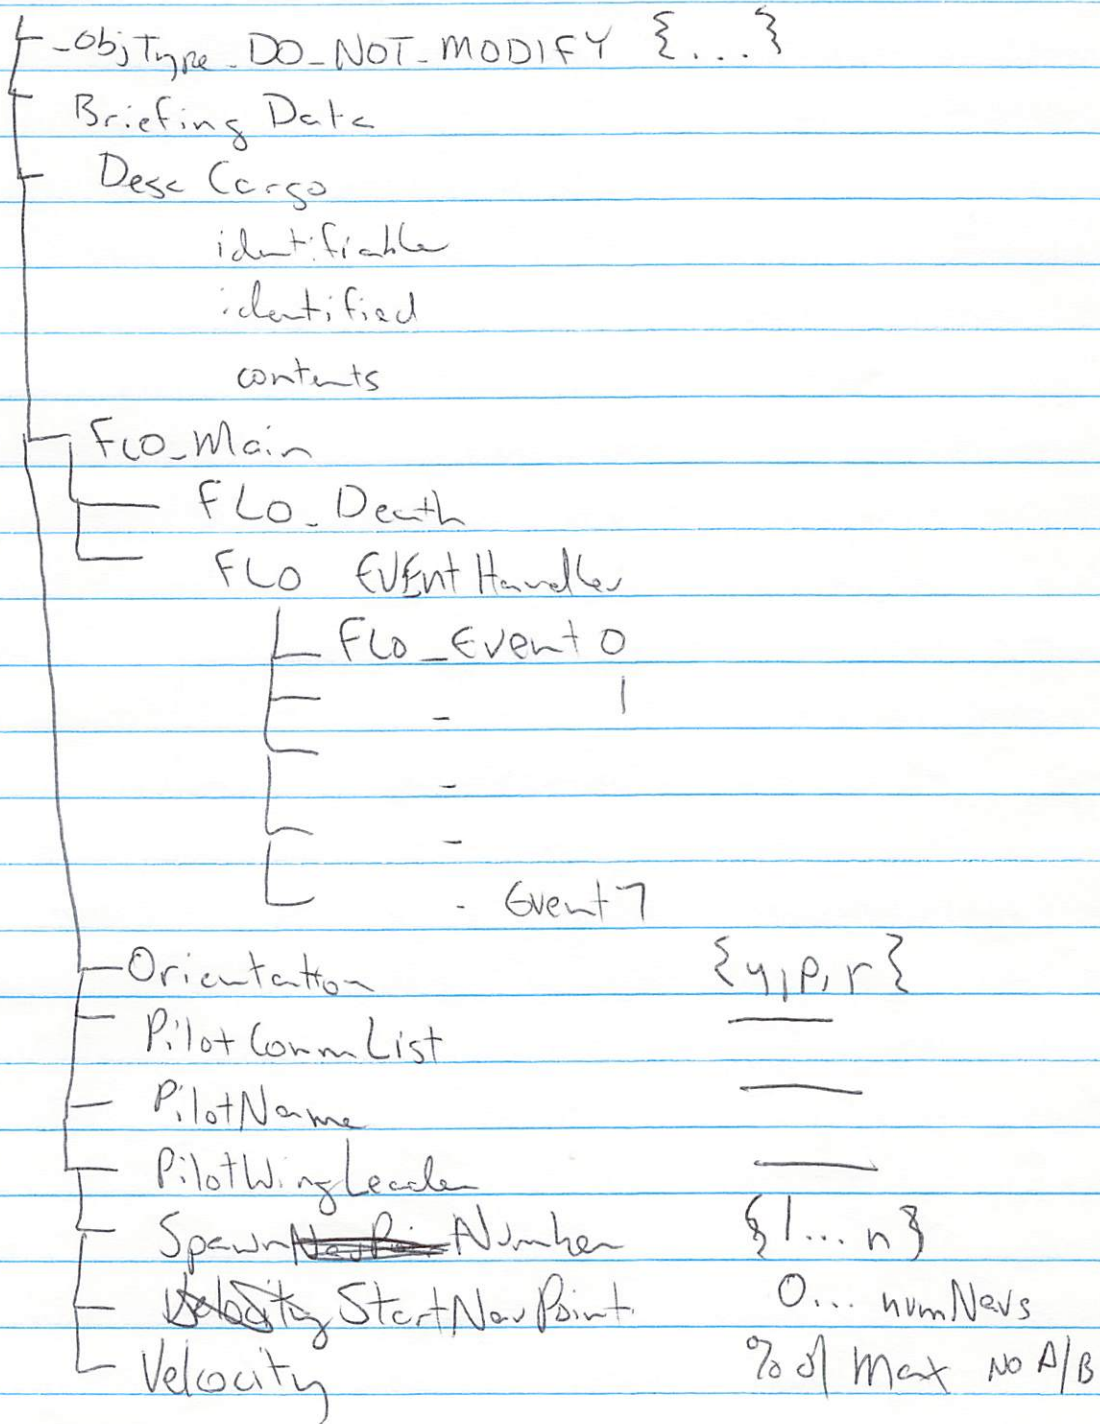 _ObjType_DO_NOT_MODIFY {...}
Briefing Data
Desc Cargo
identifiable
identified
contents
FLO_Main
FLO_Death
FLO EVEnt Handler
FLO_Event 0
- 1
-
-
- Event 7
Orientation {y,p,r}
PilotCommList ___
PilotName ___
PilotWingLeader ___
Spawn Number {1...n}
StartNavPoint 0... numNavs
Velocity % of Max NO A/B